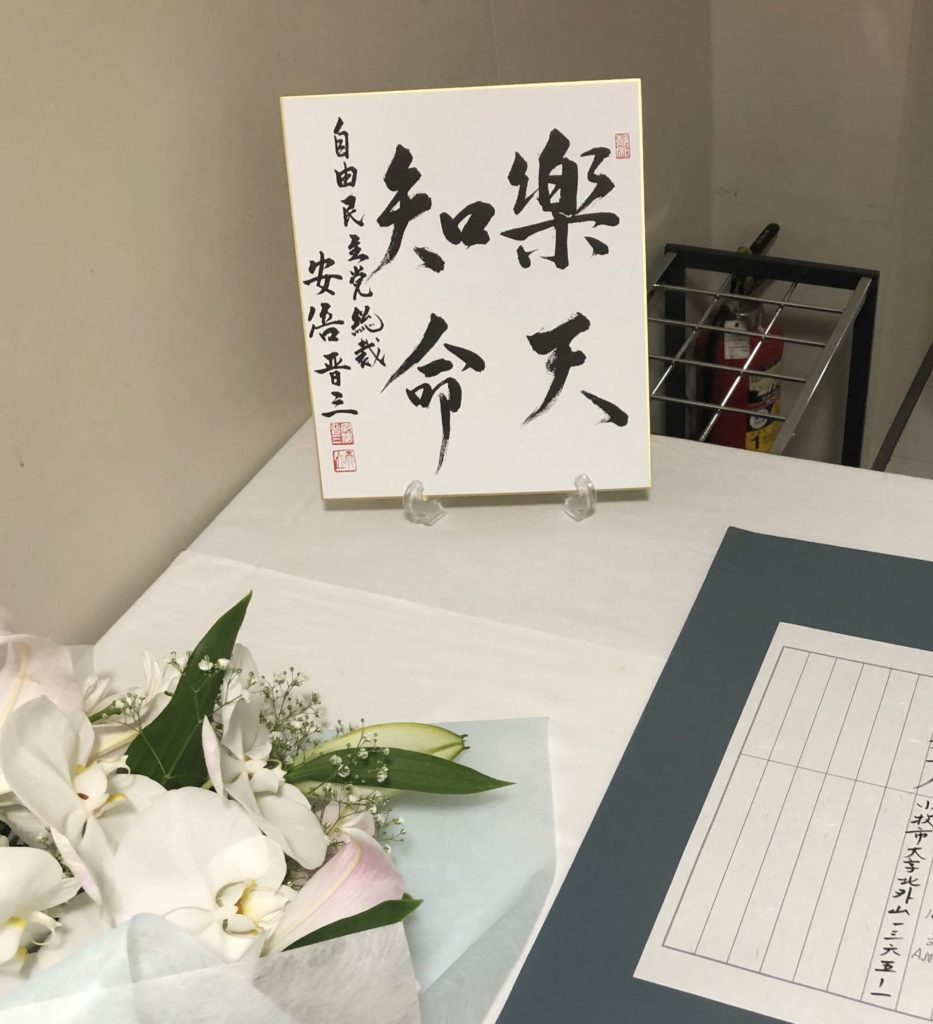 樂天
知命
自由民主党総裁
安倍晋三
1
小牧市大字北外山一三六五-一